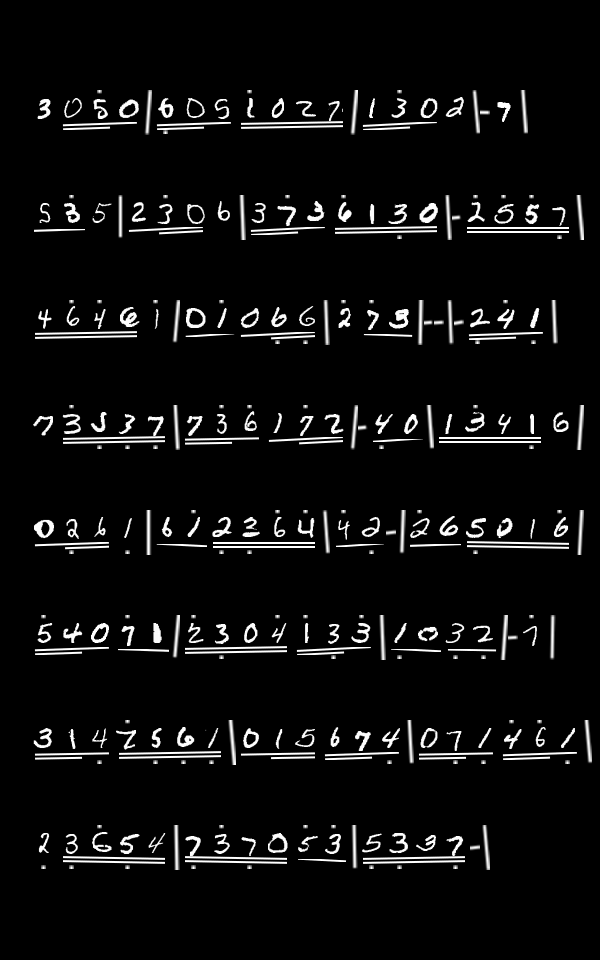 3 0 5 0 | 6 0 5 1 0 2 7 | 1 3 0 2 | - 7 |
5 3 5 | 2 3 0 6 | 3 7 3 6 1 3 0 | - 2 5 5 7 |
4 6 4 6 1 | 0 1 0 6 6 | 2 7 3 | - - | - 2 4 1 |
7 3 5 3 7 | 7 3 6 1 7 2 | - 4 0 | 1 3 4 1 6 |
0 2 6 1 | 6 1 2 3 6 4 | 4 2 - | 2 6 5 0 1 6 |
5 4 0 7 1 | 2 3 0 4 1 3 3 | 1 0 3 2 | - 7 |
3 1 4 7 5 6 1 | 0 1 5 6 7 4 | 0 7 1 4 6 1 |
2 3 6 5 4 | 7 3 7 0 5 3 | 5 3 3 7 - |